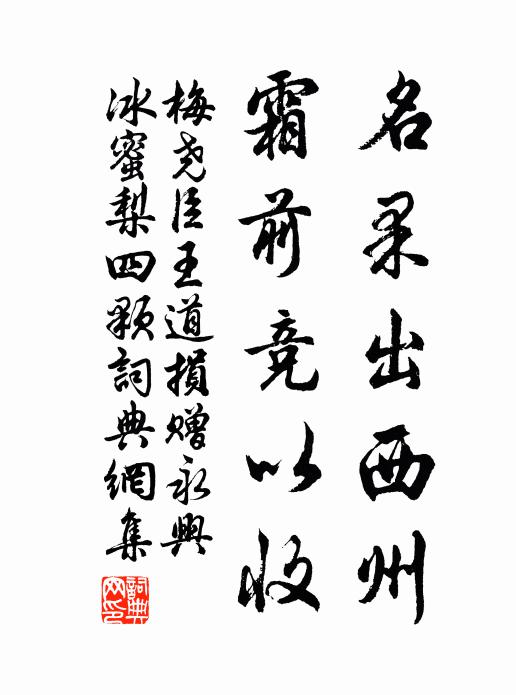 名果出西州
霜前竞以收
梅尧臣王道損赠永興
冰蜜梨四顆詞典網集
詞典网印